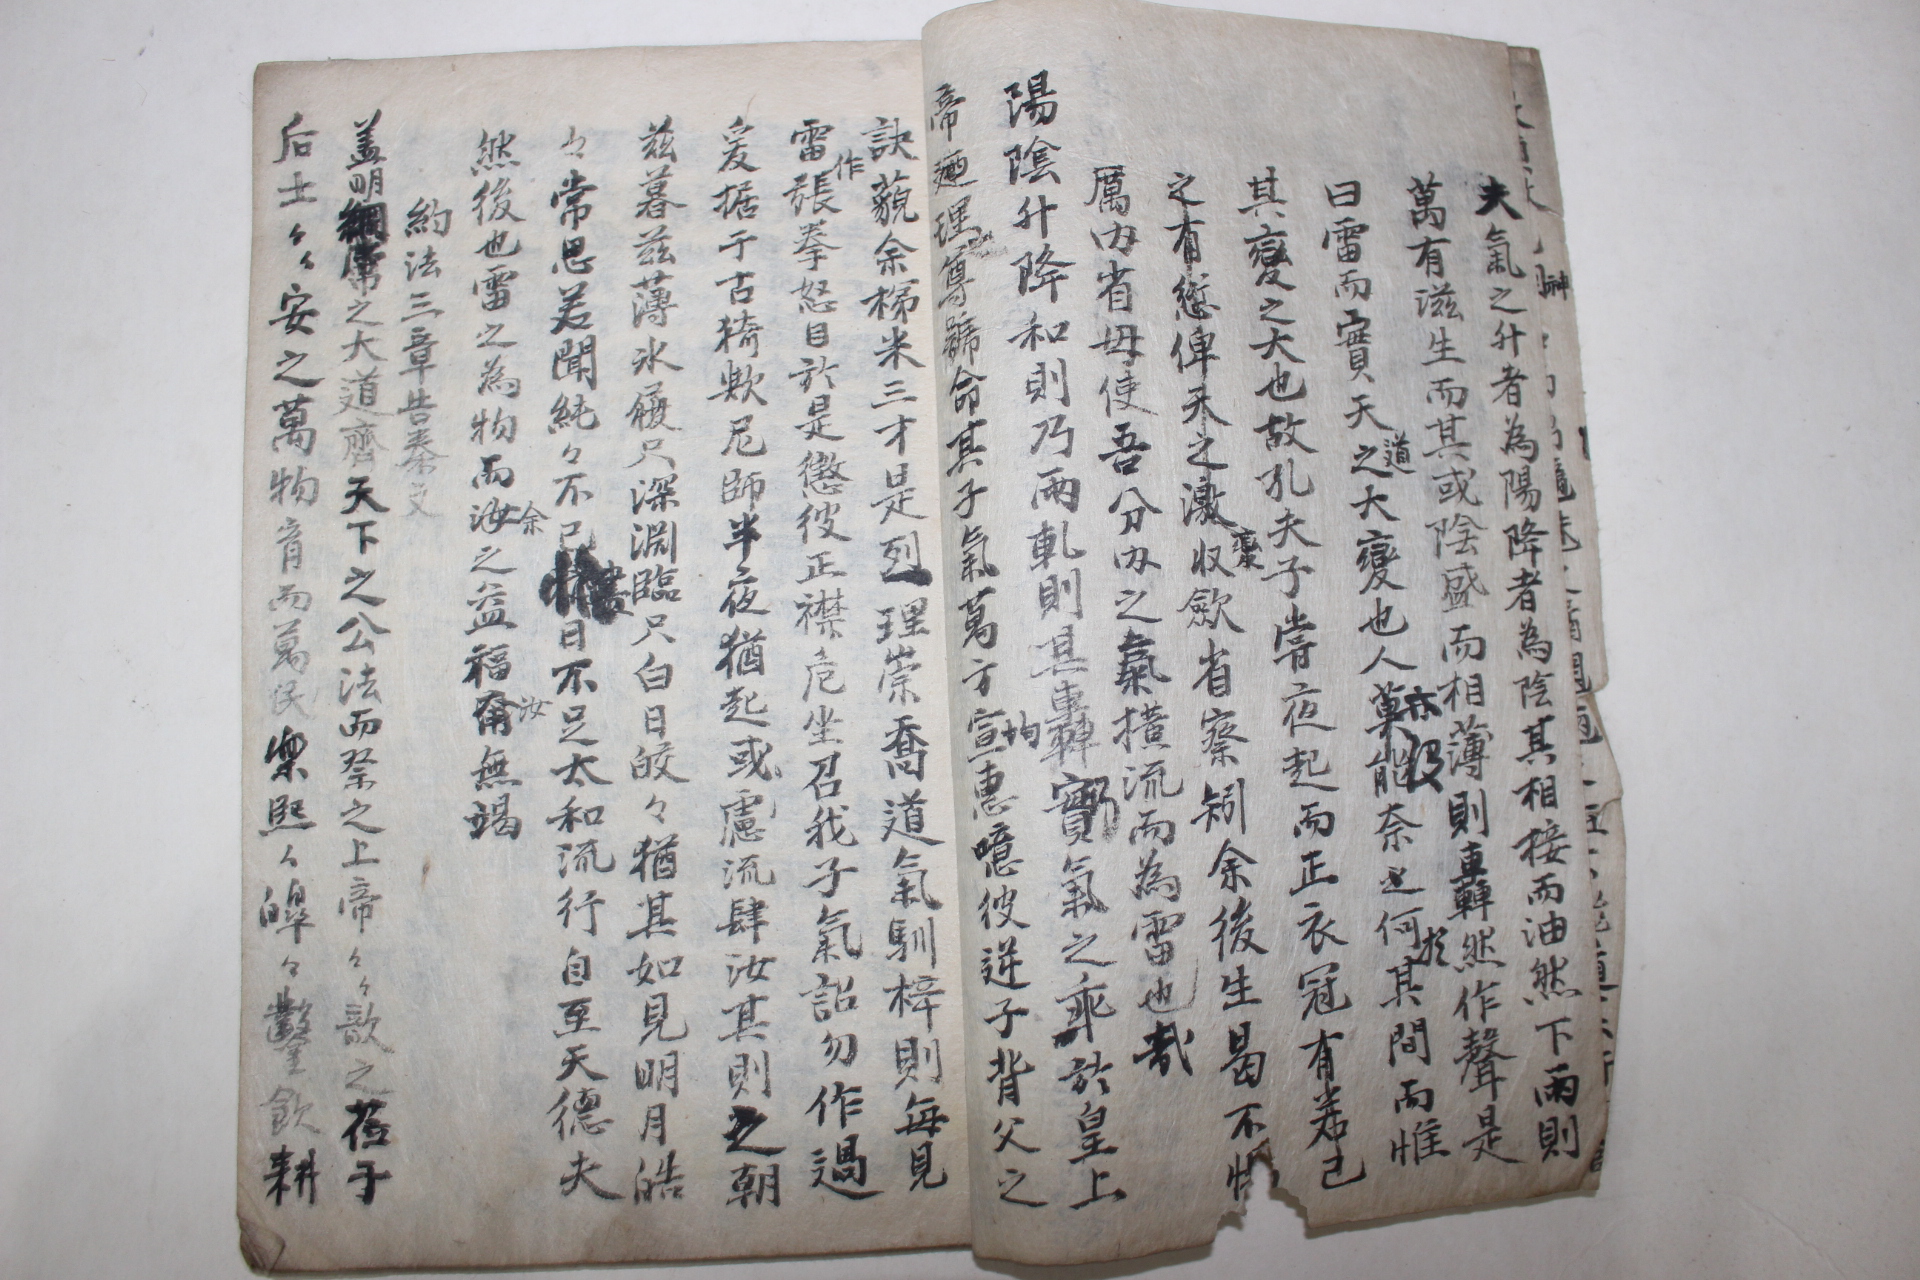 夫氣之升者為陽降者為陰其相接而油然下雨則
萬有滋生而其或陰盛而相薄則轟然作聲是
曰雷而實天之道大變也人莫能奈之何其間而惟
其變之大也故孔夫子嘗夜起而正衣冠有若己
之有愆俾天之激收歛省察矧余後生曷不
厲內省毋使吾分內之氣橫流而為雷也哉
陽陰升降和則乃雨軋則其轟實氣之乖於皇上
帝廼理尊號命其子氣萬方宣惠噫彼逆子背父之
訣藐余梯米三才是列理崇喬道氣馴梓則每見
雷作張拳怒目於是懲彼正襟危坐召我子氣詔勿作過
爰据于古猗歟尼師半夜猶起或慮流肆汝其則之朝
兹暮兹薄氷履只深淵臨只白日皎々猶其如見明月皓
々常思若聞純々不已 日不足太和流行自至天德夫
然後也雷之為物而汝余之益福爾汝無竭
約法三章告秦文
盖明綱常之大道齊天下之公法而祭之上帝々々歆之莅于
后土々々安之萬物育而萬民樂熙々皥々鑿飲耕